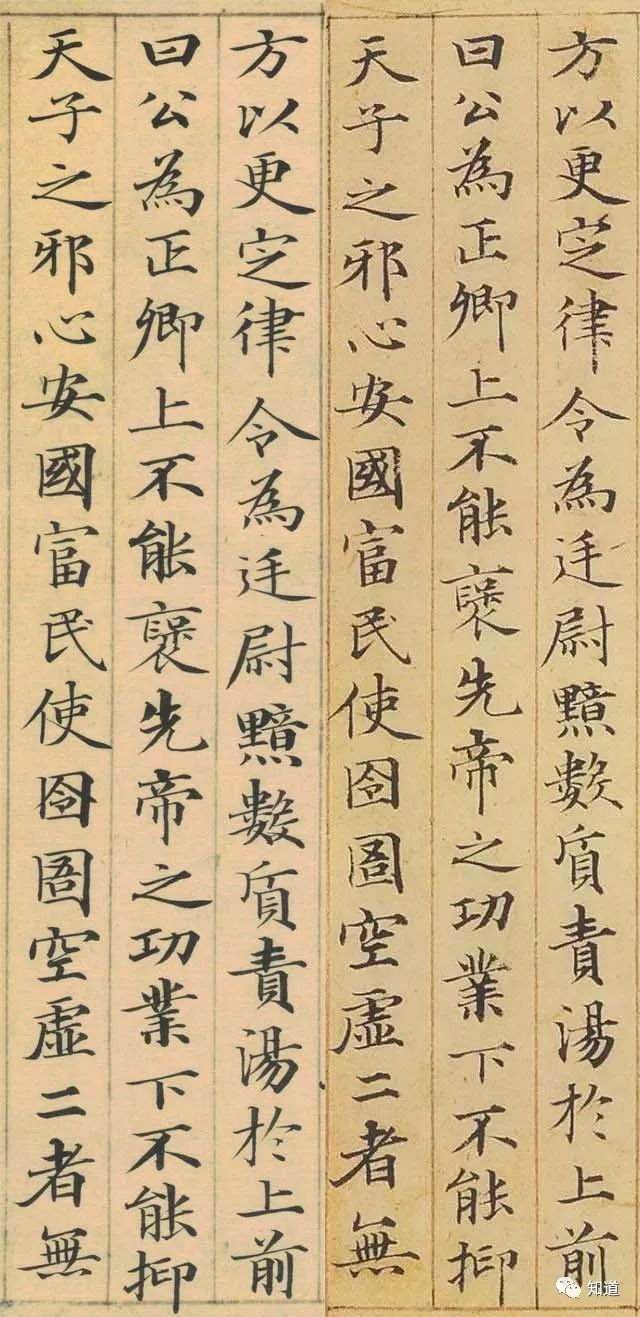 方以更定律令為廷尉黯數質責湯於上前
曰公為正卿上不能褒先帝之功業下不能抑
天子之邪心安國富民使囹圄空虛二者無
方以更定律令為廷尉黯數質責湯於上前
曰公為正卿上不能褒先帝之功業下不能抑
天子之邪心安國富民使囹圄空虛二者無
知道